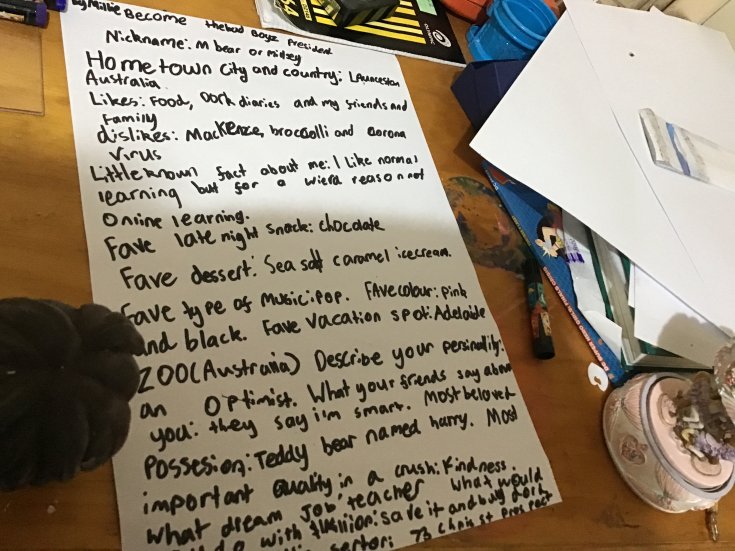 by Millie Become thebad Boyz President
Nickname: M bear or Midzey
Hometown City and country: Launceston
Australia
Likes: Food, Dork diaries and my friends and
Family
dislikes: Mackenzie, broccolli and Corona
Virus
Little known fact about me: I Like normal
learning but for a wierd reason not
Online learning.
Fave late night snack: chocolate
Fave dessert: Sea salt caramel icecream.
Fave type of Music: pop. FAvecolour: pink
And black. Fave Vacation spot: Adelaide
ZOO (Australia) Describe your personality:
an Optimist. What your friends say about
you: they say i'm smart. Most beloved
Possesion: Teddy bear named harry. Most
important quality in a crush: Kindness.
What dream Job: teacher What would
with save it and buy Dork